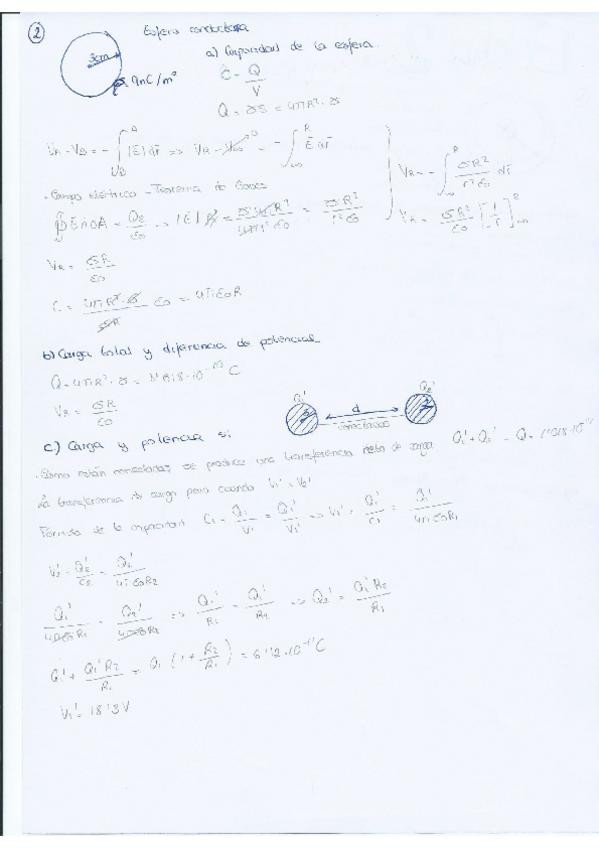 2
Esfera conductora
3cm
9nC/m²
a) Capacidad de la esfera.
C = Q/V
Q = σS = 4πR²·σ
VA - VB = -∫ |E| dr => VR - V∞ = -∫ E dr
VR = -∫ σR²/r²ε0 dr
· Campo eléctrico - Teorema de Gauss
VR = σR²/ε0 [1/r]
VR = σR/ε0
C = 4πR²·σ/σR ε0 = 4πε0R
b) Carga total y diferencia de potencial
Q = 4πR²·σ = 1'018·10⁻¹⁰ C
VR = σR/ε0
Q1' d Q2'
conectadas
c) Carga y potencial si
· Como están conectadas se produce una transferencia neta de carga Q1' + Q2' = Q = 1'018·10⁻¹⁰
La transferencia de carga para cuando V1' = V2'
Fórmula de la capacidad C1 = Q1/V1 = Q1'/V1' => V1' = Q1'/C1 = Q1'/4πε0R1
V2' = Q2'/C2 = Q2'/4πε0R2
Q1'/4πε0R1 = Q2'/4πε0R2 => Q1'/R1 = Q2'/R2 => Q2' = Q1'R2/R1
Q1' + Q1'R2/R1 = Q1 (1 + R2/R1) = 6'12·10⁻¹¹ C
V1' = 18'3V